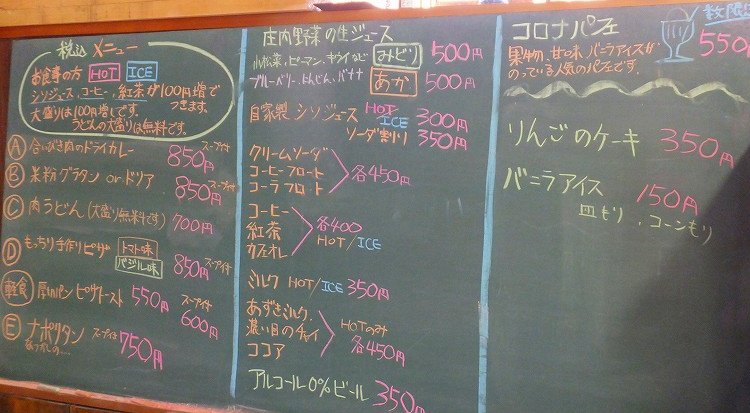 税込 メニュー
お食事の方 HOT ICE
シソジュース、コーヒー、紅茶が100円増で
つきます。
大盛りは100円増しです。
うどんの大盛りは無料です。
A 合いびき肉のドライカレー 850円 スープ付
B 米粉グラタン or ドリア 850円 スープ付
C 肉うどん(大盛り無料です) 700円
D もっちり手作りピザ トマト味 バジル味 850円 スープ付
軽食 厚切パン ピザトースト 550円 スープ付 600円
E ナポリタン スープ付 750円
なつかしの……
庄内野菜の生ジュース
小松菜、ピーマン、キウイなど みどり 500円
ブルーベリー、にんじん、バナナ あか 500円
自家製 シソジュース HOT ICE 300円
ソーダ割り 350円
クリームソーダ
コーヒーフロート 各450円
コーラフロート
コーヒー
紅茶 各400
カフェオレ HOT/ICE
ミルク HOT/ICE 350円
あずきミルク、
濃い目のチャイ HOTのみ
ココア 各450円
アルコール0%ビール 350円
コロナパフェ 数限定 550円
果物、甘味、バニラアイスが
のっている人気のパフェです。
りんごのケーキ 350円
バニラアイス 150円
皿もり、コーンもり